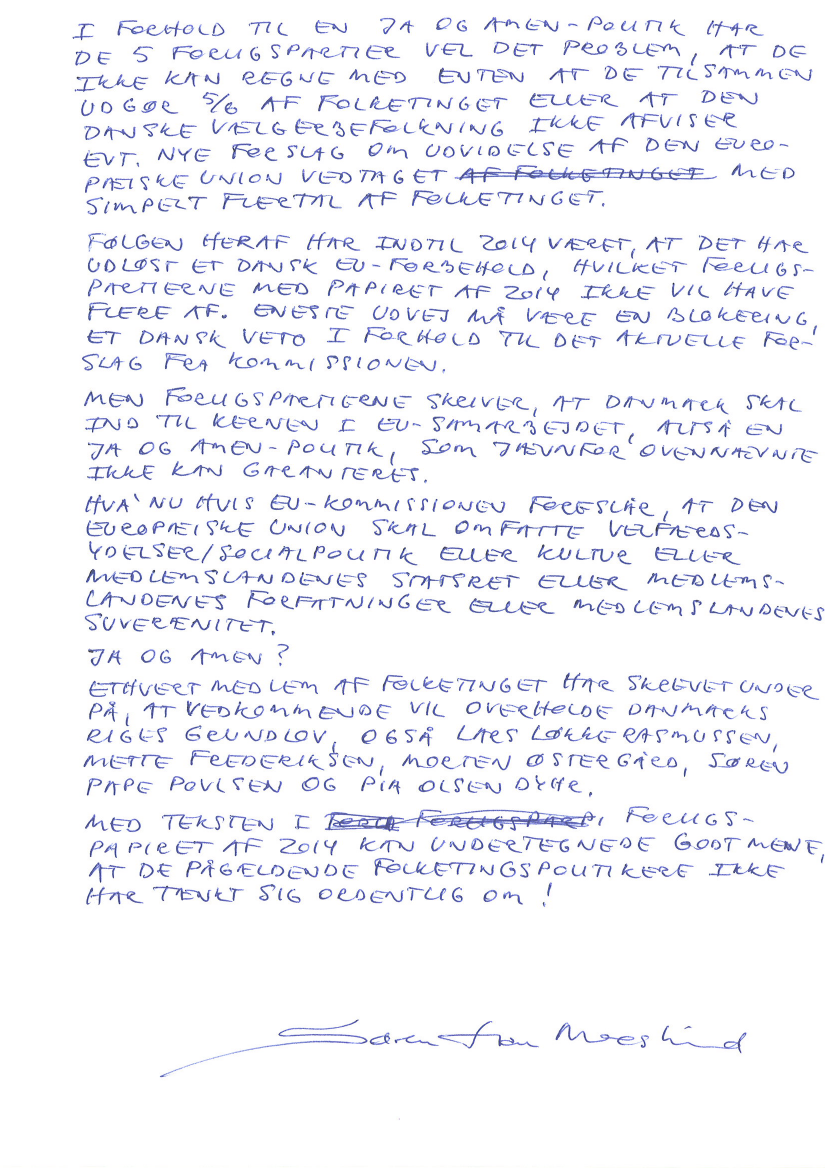 I FORHOLD TIL EN JA OG AMEN-POLITIK HAR
DE 5 FORLIGSPARTIER VEL DET PROBLEM, AT DE
IKKE KAN REGNE MED ENTEN AT DE TILSAMMEN
UDGØR 5/6 AF FOLKETINGET ELLER AT DEN
DANSKE VÆLGERBEFOLKNING IKKE AFVISER
EVT. NYE FORSLAG OM UDVIDELSE AF DEN EURO-
PÆISKE UNION VEDTAGET AF FOLKETINGET MED
SIMPELT FLERTAL AF FOLKETINGET.
FØLGEN HERAF HAR INDTIL 2014 VÆRET, AT DET HAR
UDLØST ET DANSK EU-FORBEHOLD, HVILKET FORLIGS-
PARTIERNE MED PAPIRET AF 2014 IKKE VIL HAVE
FLERE AF. ENESTE UDVEJ MÅ VÆRE EN BLOKERING,
ET DANSK VETO I FORHOLD TIL DET AKTUELLE FOR-
SLAG FRA KOMMISSIONEN.
MEN FORLIGSPARTIERNE SKRIVER, AT DANMARK SKAL
IND TIL KERNEN I EU-SAMARBEJDET, ALTSÅ EN
JA OG AMEN-POLITIK, SOM JÆVNFØR OVENNÆVNTE
IKKE KAN GARANTERES.
HVA' NU HVIS EU-KOMMISSIONEN FORESLÅR, AT DEN
EUROPÆISKE UNION SKAL OMFATTE VELFÆRDS-
YDELSER/SOCIALPOLITIK ELLER KULTUR ELLER
MEDLEMSLANDENES STATSRET ELLER MEDLEMS-
LANDENES FORFATNINGER ELLER MEDLEMSLANDENES
SUVERÆNITET.
JA OG AMEN?
ETHVERT MEDLEM AF FOLKETINGET HAR SKREVET UNDER
PÅ, AT VEDKOMMENDE VIL OVERHOLDE DANMARKS
RIGES GRUNDLOV, OGSÅ LARS LØKKE RASMUSSEN,
METTE FREDERIKSEN, MORTEN ØSTERGÅRD, SØREN
PAPE POULSEN OG PIA OLSEN DYHR.
MED TEKSTEN I FORLIGS-
PAPIRET AF 2014 KAN UNDERTEGNEDE GODT MENE,
AT DE PÅGÆLDENDE FOLKETINGSPOLITIKERE IKKE
HAR TÆNKT SIG ORDENTLIG OM!
Søren